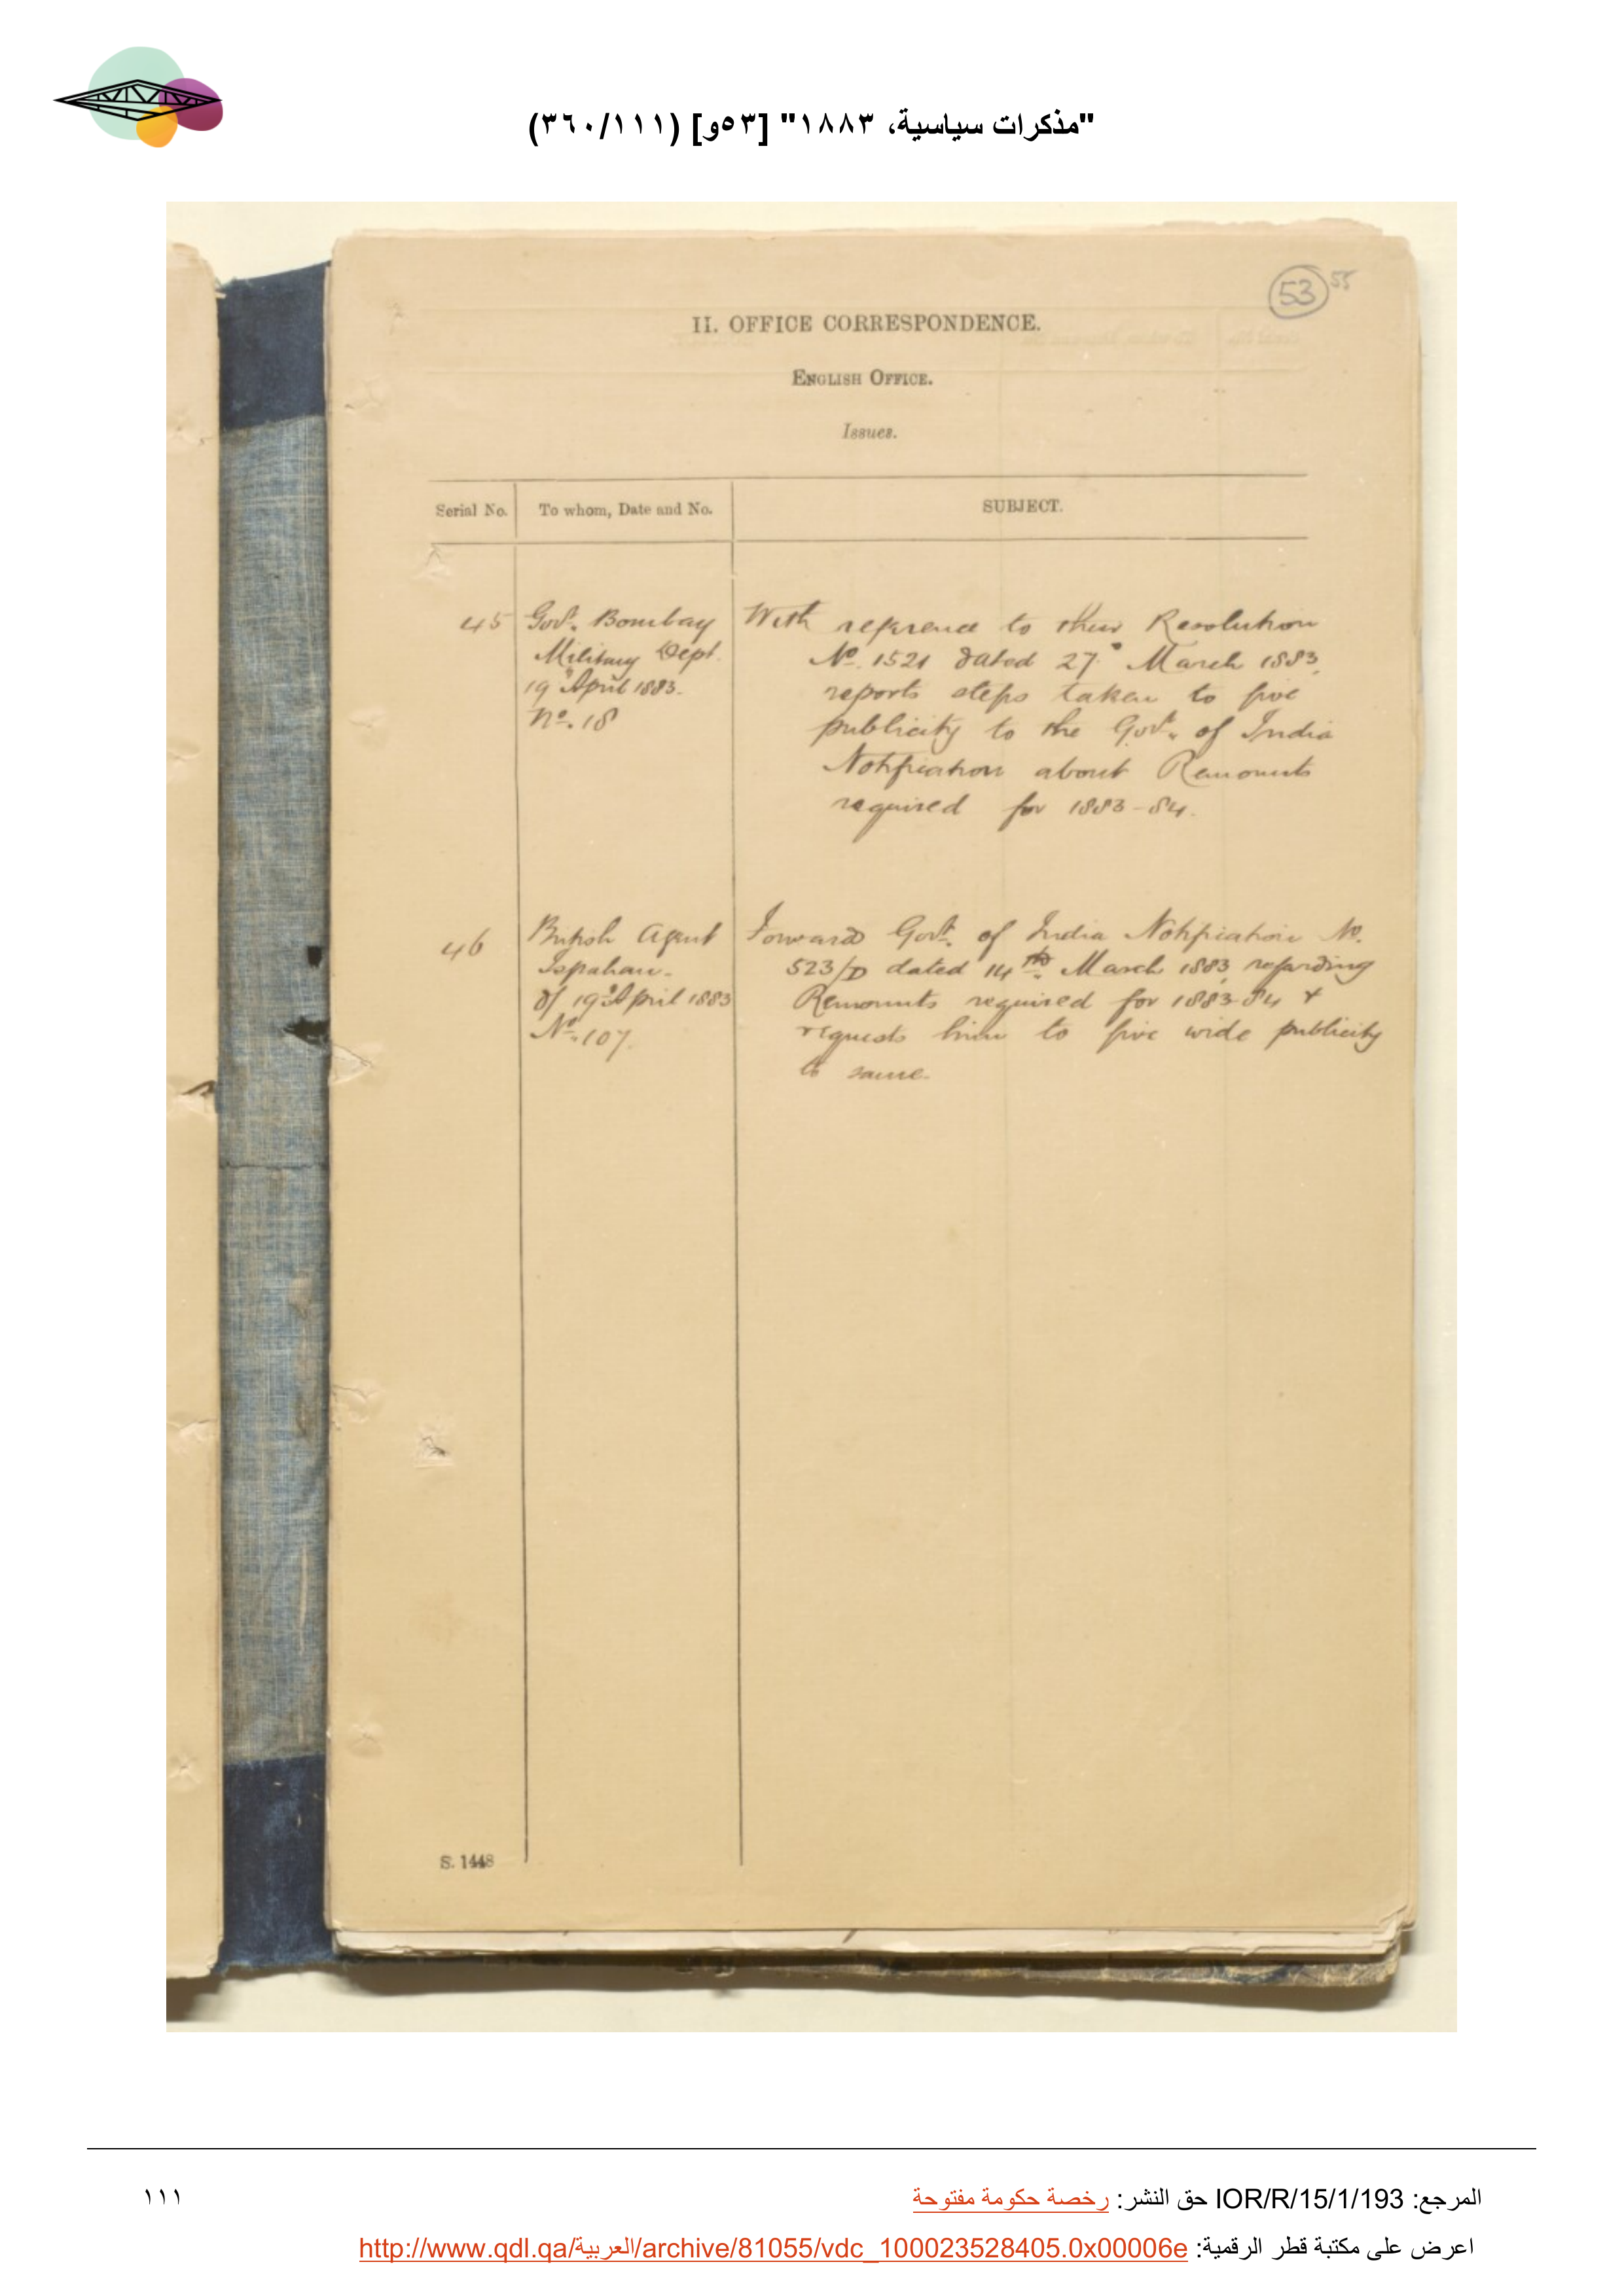 "مذكرات سياسية، ١٨٨٣" [٥٣و] (٣٦٠/١١١)
53 55
II. OFFICE CORRESPONDENCE.
ENGLISH OFFICE.
Issues.
Serial No. To whom, Date and No. SUBJECT.
45 Govt. Bombay
Military Dept.
19 April 1883.
No. 18
With reference to their Resolution
No. 1521 dated 27 March 1883,
reports steps taken to give
publicity to the Govt. of India
Notification about Remounts
required for 1883-84.
46 British Agent
Ispahan.
of 19 April 1883
No. 107.
Forwards Govt. of India Notification No.
523/D dated 14th March 1883 regarding
Remounts required for 1883-84 &
requests him to give wide publicity
to same.
S. 1448
المرجع: IOR/R/15/1/193 حق النشر: رخصة حكومة مفتوحة
١١١
اعرض على مكتبة قطر الرقمية: http://www.qdl.qa/العربية/archive/81055/vdc_100023528405.0x00006e